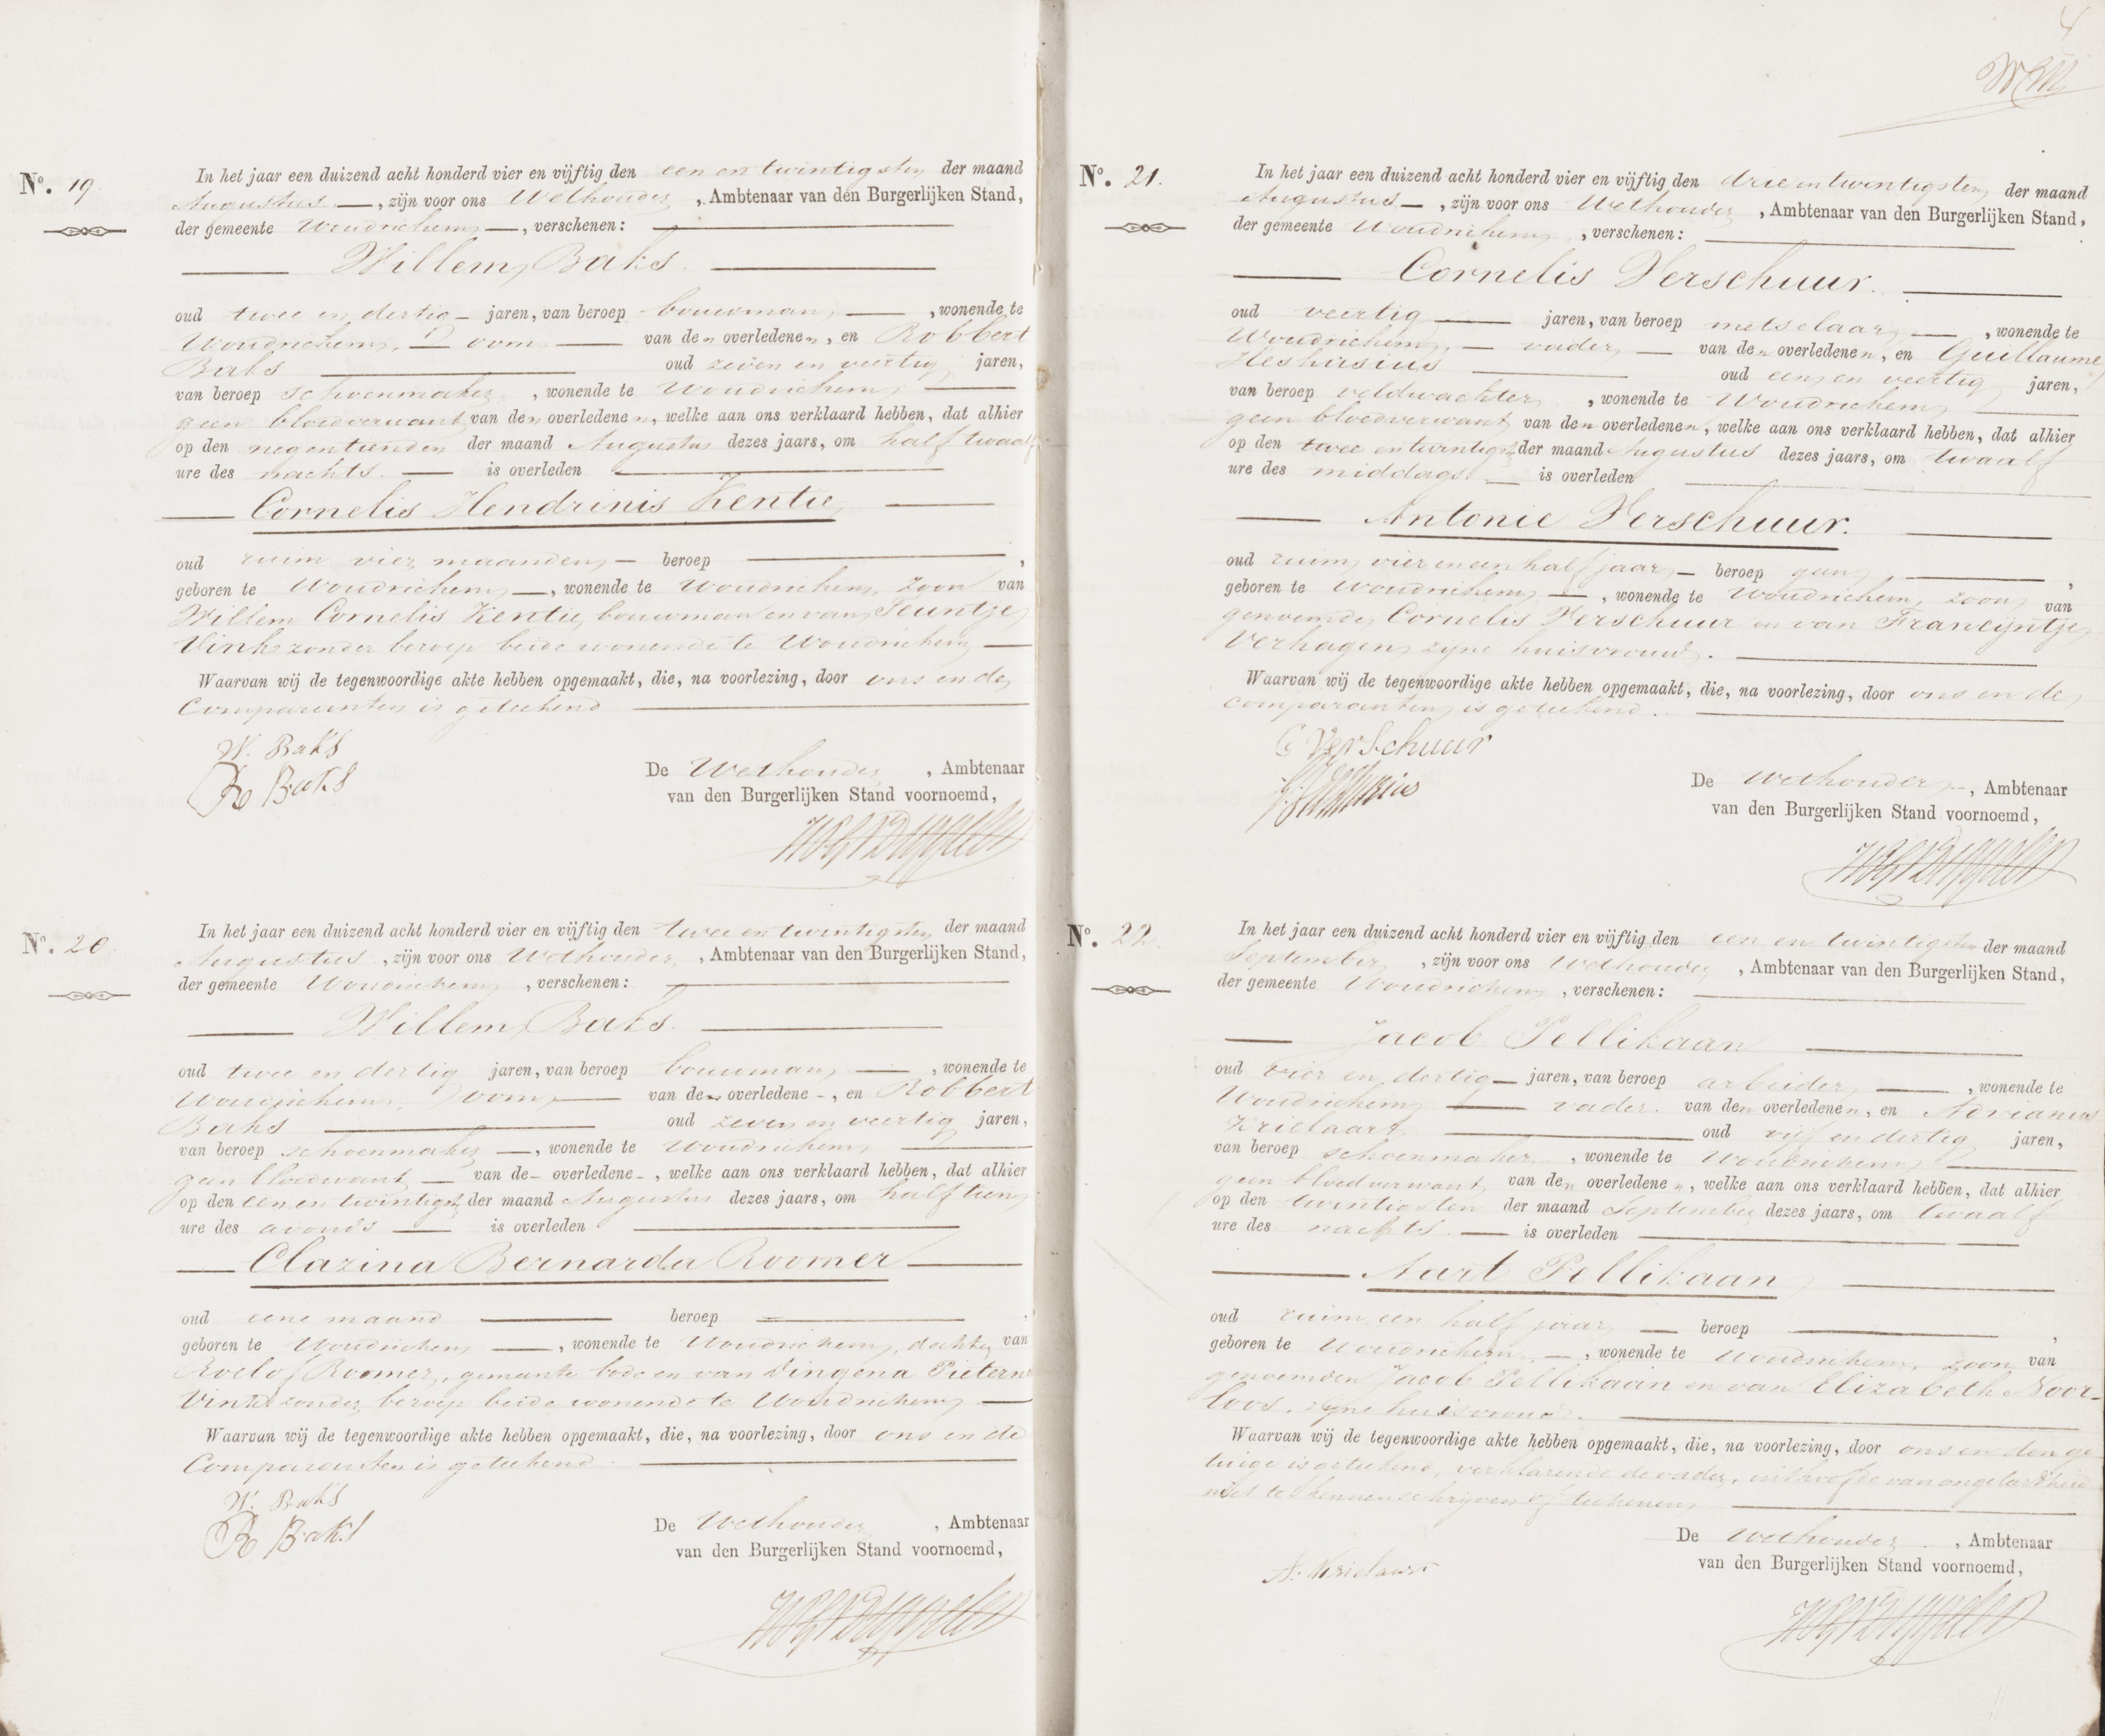 No. 19.
In het jaar een duizend acht honderd vier en vijftig den een en twintigsten der maand
Augustus —, zijn voor ons Wethouder, Ambtenaar van den Burgerlijken Stand,
der gemeente Woudrichem —, verschenen:
Willem Baks.
oud twee en dertig — jaren, van beroep bouwman —, wonende te
Woudrichem, oom — van den overledenen, en Robbert
Baks oud zeven en veertig jaren,
van beroep schoenmaker, wonende te Woudrichem
geen bloedverwant van den overledenen, welke aan ons verklaard hebben, dat alhier
op den negentienden der maand Augustus dezes jaars, om half twaalf
ure des nachts — is overleden
Cornelis Hendrinis Kentie
oud ruim vier maanden — beroep —,
geboren te Woudrichem —, wonende te Woudrichem, zoon van
Willem Cornelis Kentie, bouwman en van Teuntje
Vink zonder beroep beide wonende te Woudrichem —
Waarvan wij de tegenwoordige akte hebben opgemaakt, die, na voorlezing, door ons en de
Comparanten is geteekend
W. Baks
R Baks
De Wethouder, Ambtenaar
van den Burgerlijken Stand voornoemd,
No. 20.
In het jaar een duizend acht honderd vier en vijftig den twee en twintigsten der maand
Augustus, zijn voor ons Wethouder, Ambtenaar van den Burgerlijken Stand,
der gemeente Woudrichem, verschenen:
Willem Baks.
oud twee en dertig jaren, van beroep bouwman —, wonende te
Woudrichem, oom — van de overledene -, en Robbert
Baks oud zeven en veertig jaren,
van beroep schoenmaker —, wonende te Woudrichem
geen bloedvwant — van de- overledene-, welke aan ons verklaard hebben, dat alhier
op den een en twintigst der maand Augustus dezes jaars, om half tien
ure des avonds — is overleden
Clazina Bernarda Roomer
oud eene maand — beroep —
geboren te Woudrichem —, wonende te Woudrichem, dochter van
Roelof Roomer, gemeente bode en van Dingena Pieterna
Vink zonder beroep beide wonende te Woudrichem —
Waarvan wij de tegenwoordige akte hebben opgemaakt, die, na voorlezing, door ons en de
Comparanten is geteekend.
W. Baks
R Baks
De Wethouder, Ambtenaar
van den Burgerlijken Stand voornoemd,
4
No. 21.
In het jaar een duizend acht honderd vier en vijftig den drie en twintigsten der maand
Augustus —, zijn voor ons Wethouder, Ambtenaar van den Burgerlijken Stand,
der gemeente Woudrichem, verschenen:
Cornelis Verschuur.
oud veertig — jaren, van beroep metselaar —, wonende te
Woudrichem, — vader — van den overledenen, en Guillaume
Heshusius oud een en veertig jaren,
van beroep veldwachter, wonende te Woudrichem
geen bloedverwant van den overledenen, welke aan ons verklaard hebben, dat alhier
op den twee en twintigst der maand Augustus dezes jaars, om twaalf
ure des middags. — is overleden
Antonie Verschuur.
oud ruim vier en een half jaar — beroep geen —,
geboren te Woudrichem —, wonende te Woudrichem, zoon van
genoemde Cornelis Verschuur en van Francijntje
Verhagen, zyne huisvrouw.
Waarvan wij de tegenwoordige akte hebben opgemaakt, die, na voorlezing, door ons en de
comparanten is geteekend.
C VerSchuur
De Wethouder, Ambtenaar
van den Burgerlijken Stand voornoemd,
No. 22.
In het jaar een duizend acht honderd vier en vijftig den een en twintigsten der maand
September, zijn voor ons Wethouder, Ambtenaar van den Burgerlijken Stand,
der gemeente Woudrichem, verschenen:
Jacob Pellikaan
oud vier en dertig — jaren, van beroep arbeider —, wonende te
Woudrichem — vader. van den overledenen, en Adrianus
Krielaart oud vijf en dertig jaren,
van beroep schoenmaker, wonende te Woudrichem
geen bloedverwant van den overledenen, welke aan ons verklaard hebben, dat alhier
op den twintigsten der maand September dezes jaars, om twaalf
ure des nachts. — is overleden
Aart Pellikaan
oud ruim een half jaar — beroep —,
geboren te Woudrichem —, wonende te Woudrichem, zoon van
genoemden Jacob Pellikaan en van Elizabeth Noor-
loos, zyne huisvrouw.
Waarvan wij de tegenwoordige akte hebben opgemaakt, die, na voorlezing, door ons en den ge
tuige is geteekend, verklarende de vader, uit hoofde van ongeleerdheid
niet te kennen schrijven of teekenen
A. Krielaart
De Wethouder, Ambtenaar
van den Burgerlijken Stand voornoemd,